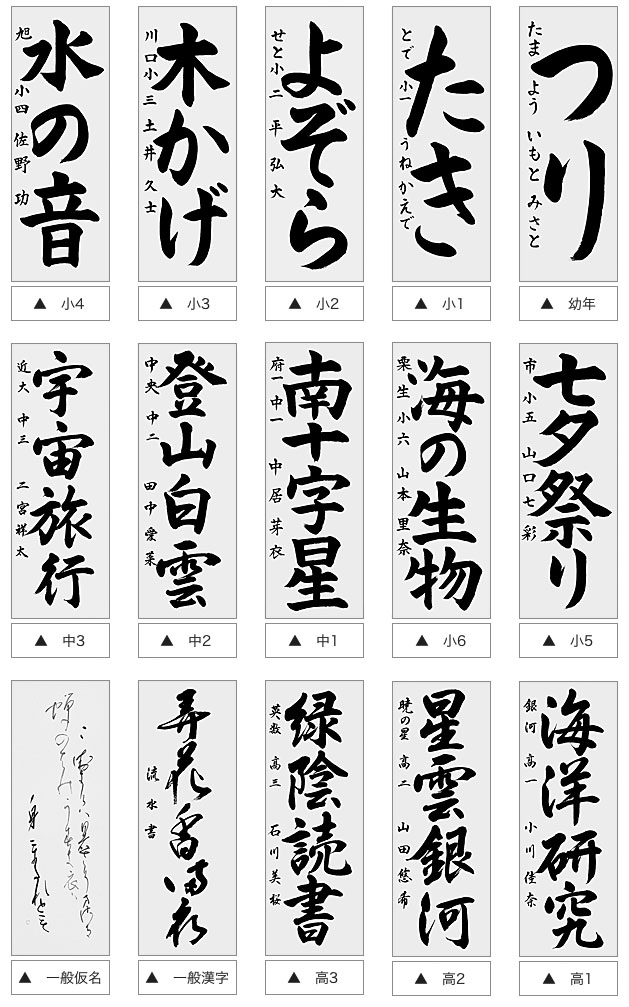 つり
たま よう いもと みさと
▲ 幼年
たき
とで 小一 うねかえで
▲ 小1
よぞら
せと小 二 平 弘大
▲ 小2
木かげ
川口小 三 土井 久士
▲ 小3
水の音
旭 小四 佐野 功
▲ 小4
七夕祭り
市 小五 山口 七彩
▲ 小5
海の生物
栗生 小六 山本 里奈
▲ 小6
南十字星
府一中一 中居 芽衣
▲ 中1
登山白雲
中央 中二 田中 愛菜
▲ 中2
宇宙旅行
近大 中三 二宮祥太
▲ 中3
海洋研究
銀河 高一 小川佳奈
▲ 高1
星雲銀河
暁の星 高二 山田悠希
▲ 高2
緑陰読書
英数 高三 石川美桜
▲ 高3
弄花香満衣
流水書
▲ 一般漢字
▲ 一般仮名